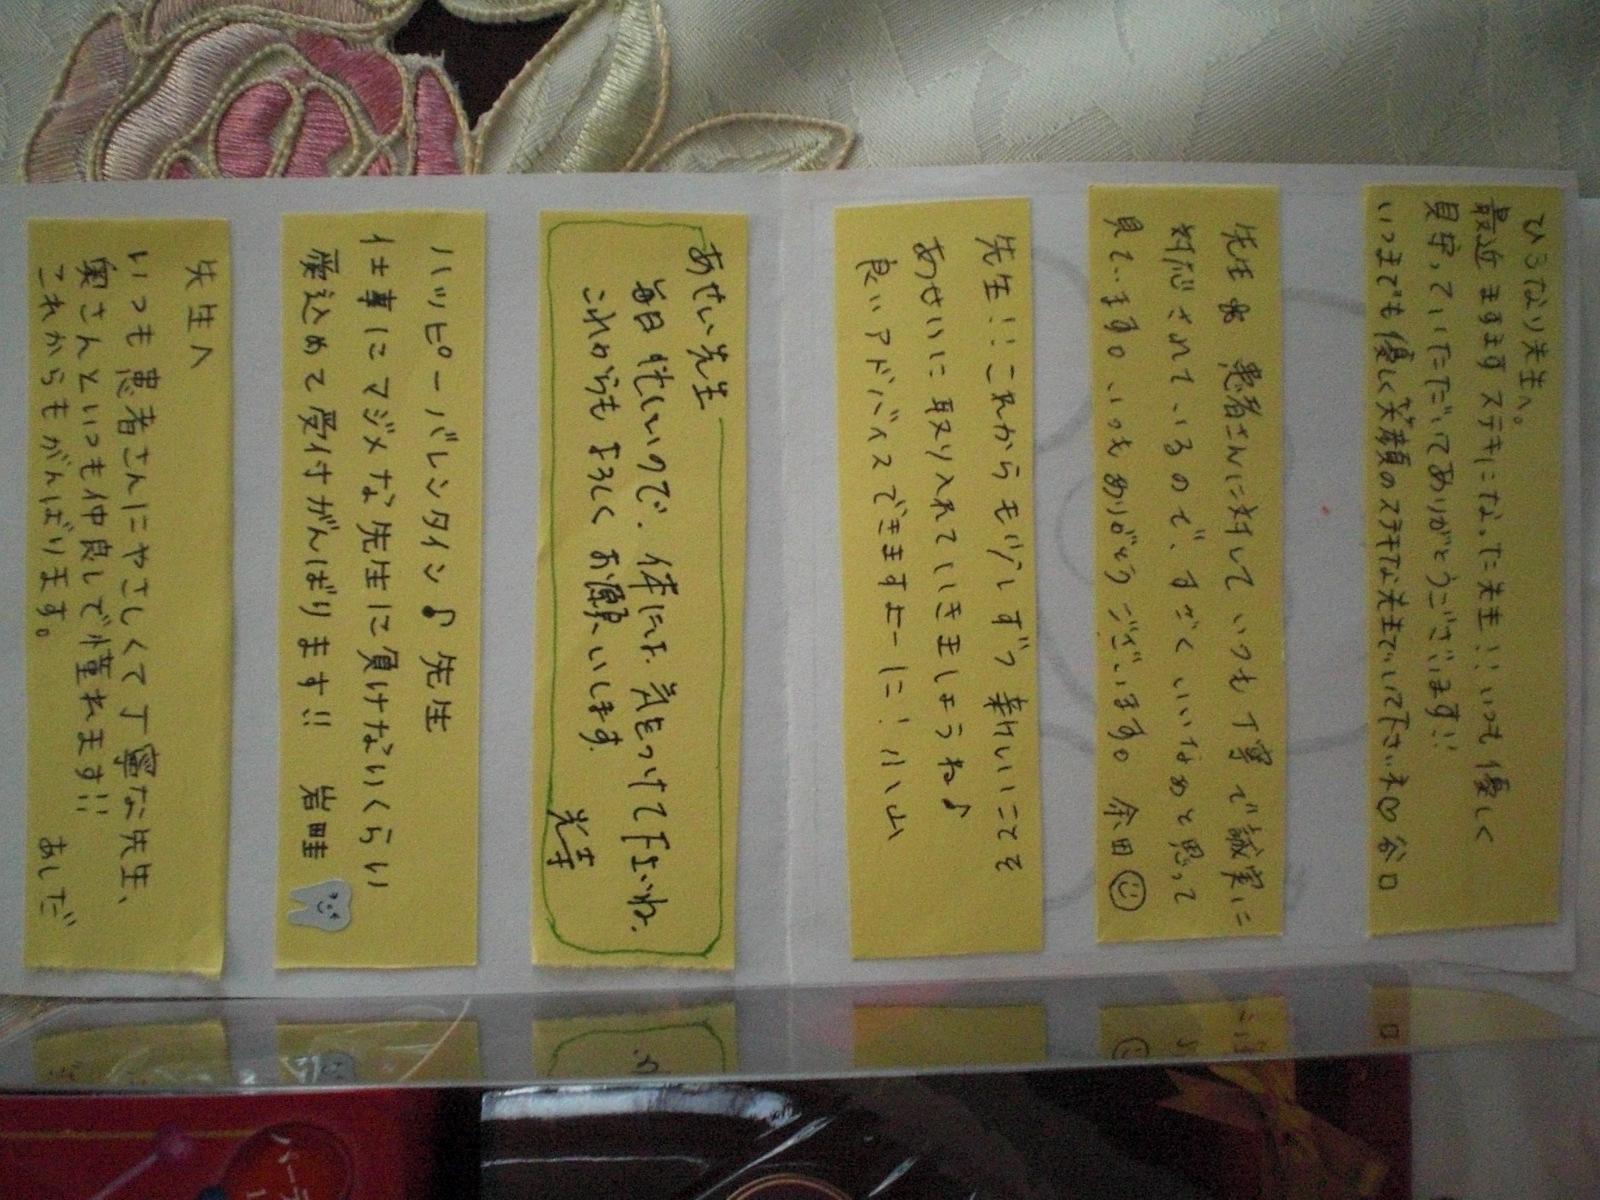 ひろなり先生へ。
最近ますますステキになった先生!!いつも優しく
見守っていただいてありがとうございます!!
いつまでも優しく笑顔のステキな先生でいて下さいネ♡ 谷口
先生 患者さんに対していつも丁寧で誠実に
対応されているので、すごくいいなぁと思って
見ています。いつもありがとうございます。 余田
先生!!これからも少しずつ新しいことを
あせいに取り入れていきましょうね♪
良いアドバイスできますよーに! 小山
あせい先生
毎日忙しいので、体には気をつけて下さいね。
これからもよろしくお願いします。
ハッピーバレンタイン♪先生
仕事にマジメな先生に負けないくらい
愛込めて受付がんばります!! 岩野
先生へ
いつも患者さんにやさしくて丁寧な先生、
奥さんといつも仲良しで憧れます!!
これからもがんばります。 あしだ